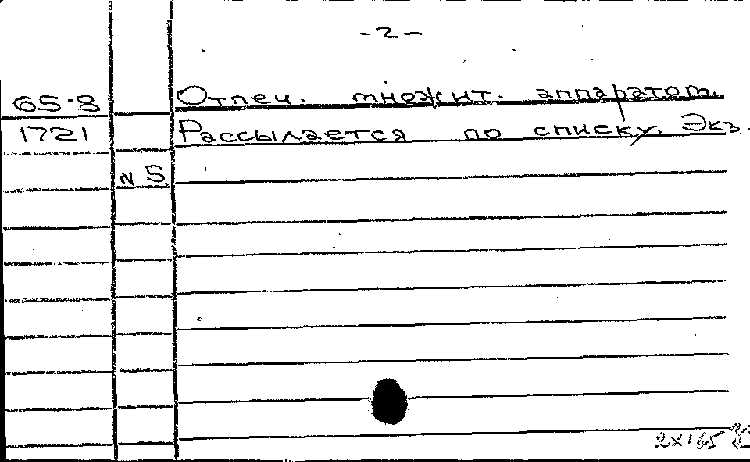 -2-
65-8 Отпеч. множит. аппаратом.
1721 Рассылается по списку. Экз.
N 5
2х165